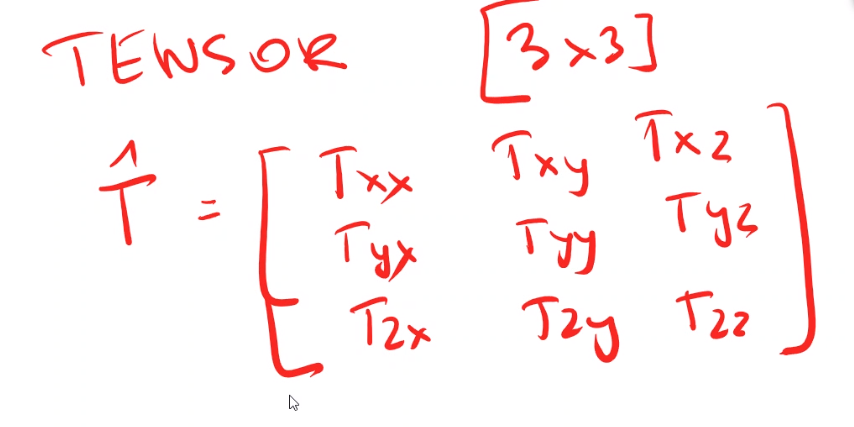 TENSOR [3x3]
T̂ = [ Txx Txy Txz
Tyx Tyy Tyz
Tzx Tzy Tzz ]